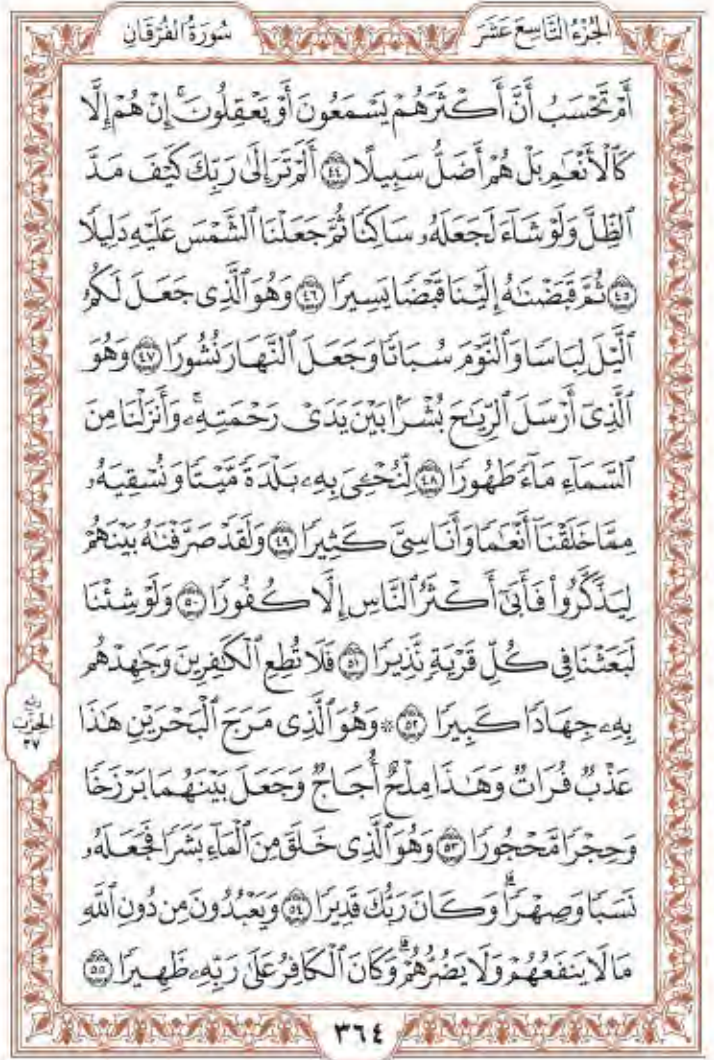 الجُزْءُ التَّاسِعَ عَشَرَ
سُورَةُ الفُرْقَانِ
أَمْ تَحْسَبُ أَنَّ أَكْثَرَهُمْ يَسْمَعُونَ أَوْ يَعْقِلُونَ ۚ إِنْ هُمْ إِلَّا
كَٱلْأَنْعَٰمِ بَلْ هُمْ أَضَلُّ سَبِيلًا ٤٤ أَلَمْ تَرَ إِلَىٰ رَبِّكَ كَيْفَ مَدَّ
ٱلظِّلَّ وَلَوْ شَآءَ لَجَعَلَهُۥ سَاكِنًا ثُمَّ جَعَلْنَا ٱلشَّمْسَ عَلَيْهِ دَلِيلًا
٤٥ ثُمَّ قَبَضْنَٰهُ إِلَيْنَا قَبْضًا يَسِيرًا ٤٦ وَهُوَ ٱلَّذِى جَعَلَ لَكُمُ
ٱلَّيْلَ لِبَاسًا وَٱلنَّوْمَ سُبَاتًا وَجَعَلَ ٱلنَّهَارَ نُشُورًا ٤٧ وَهُوَ
ٱلَّذِىٓ أَرْسَلَ ٱلرِّيَٰحَ بُشْرًۢا بَيْنَ يَدَىْ رَحْمَتِهِۦ ۚ وَأَنزَلْنَا مِنَ
ٱلسَّمَآءِ مَآءً طَهُورًا ٤٨ لِّنُحْـِۧىَ بِهِۦ بَلْدَةً مَّيْتًا وَنُسْقِيَهُۥ
مِمَّا خَلَقْنَآ أَنْعَٰمًا وَأَنَاسِىَّ كَثِيرًا ٤٩ وَلَقَدْ صَرَّفْنَٰهُ بَيْنَهُمْ
لِيَذَّكَّرُوا۟ فَأَبَىٰٓ أَكْثَرُ ٱلنَّاسِ إِلَّا كُفُورًا ٥٠ وَلَوْ شِئْنَا
لَبَعَثْنَا فِى كُلِّ قَرْيَةٍ نَّذِيرًا ٥١ فَلَا تُطِعِ ٱلْكَٰفِرِينَ وَجَٰهِدْهُم
بِهِۦ جِهَادًا كَبِيرًا ٥٢ ۞ وَهُوَ ٱلَّذِى مَرَجَ ٱلْبَحْرَيْنِ هَٰذَا
عَذْبٌ فُرَاتٌ وَهَٰذَا مِلْحٌ أُجَاجٌ وَجَعَلَ بَيْنَهُمَا بَرْزَخًا
وَحِجْرًا مَّحْجُورًا ٥٣ وَهُوَ ٱلَّذِى خَلَقَ مِنَ ٱلْمَآءِ بَشَرًا فَجَعَلَهُۥ
نَسَبًا وَصِهْرًا ۗ وَكَانَ رَبُّكَ قَدِيرًا ٥٤ وَيَعْبُدُونَ مِن دُونِ ٱللَّهِ
مَا لَا يَنفَعُهُمْ وَلَا يَضُرُّهُمْ ۗ وَكَانَ ٱلْكَافِرُ عَلَىٰ رَبِّهِۦ ظَهِيرًا ٥٥
ربع
الحزب
٣٧
٣٦٤